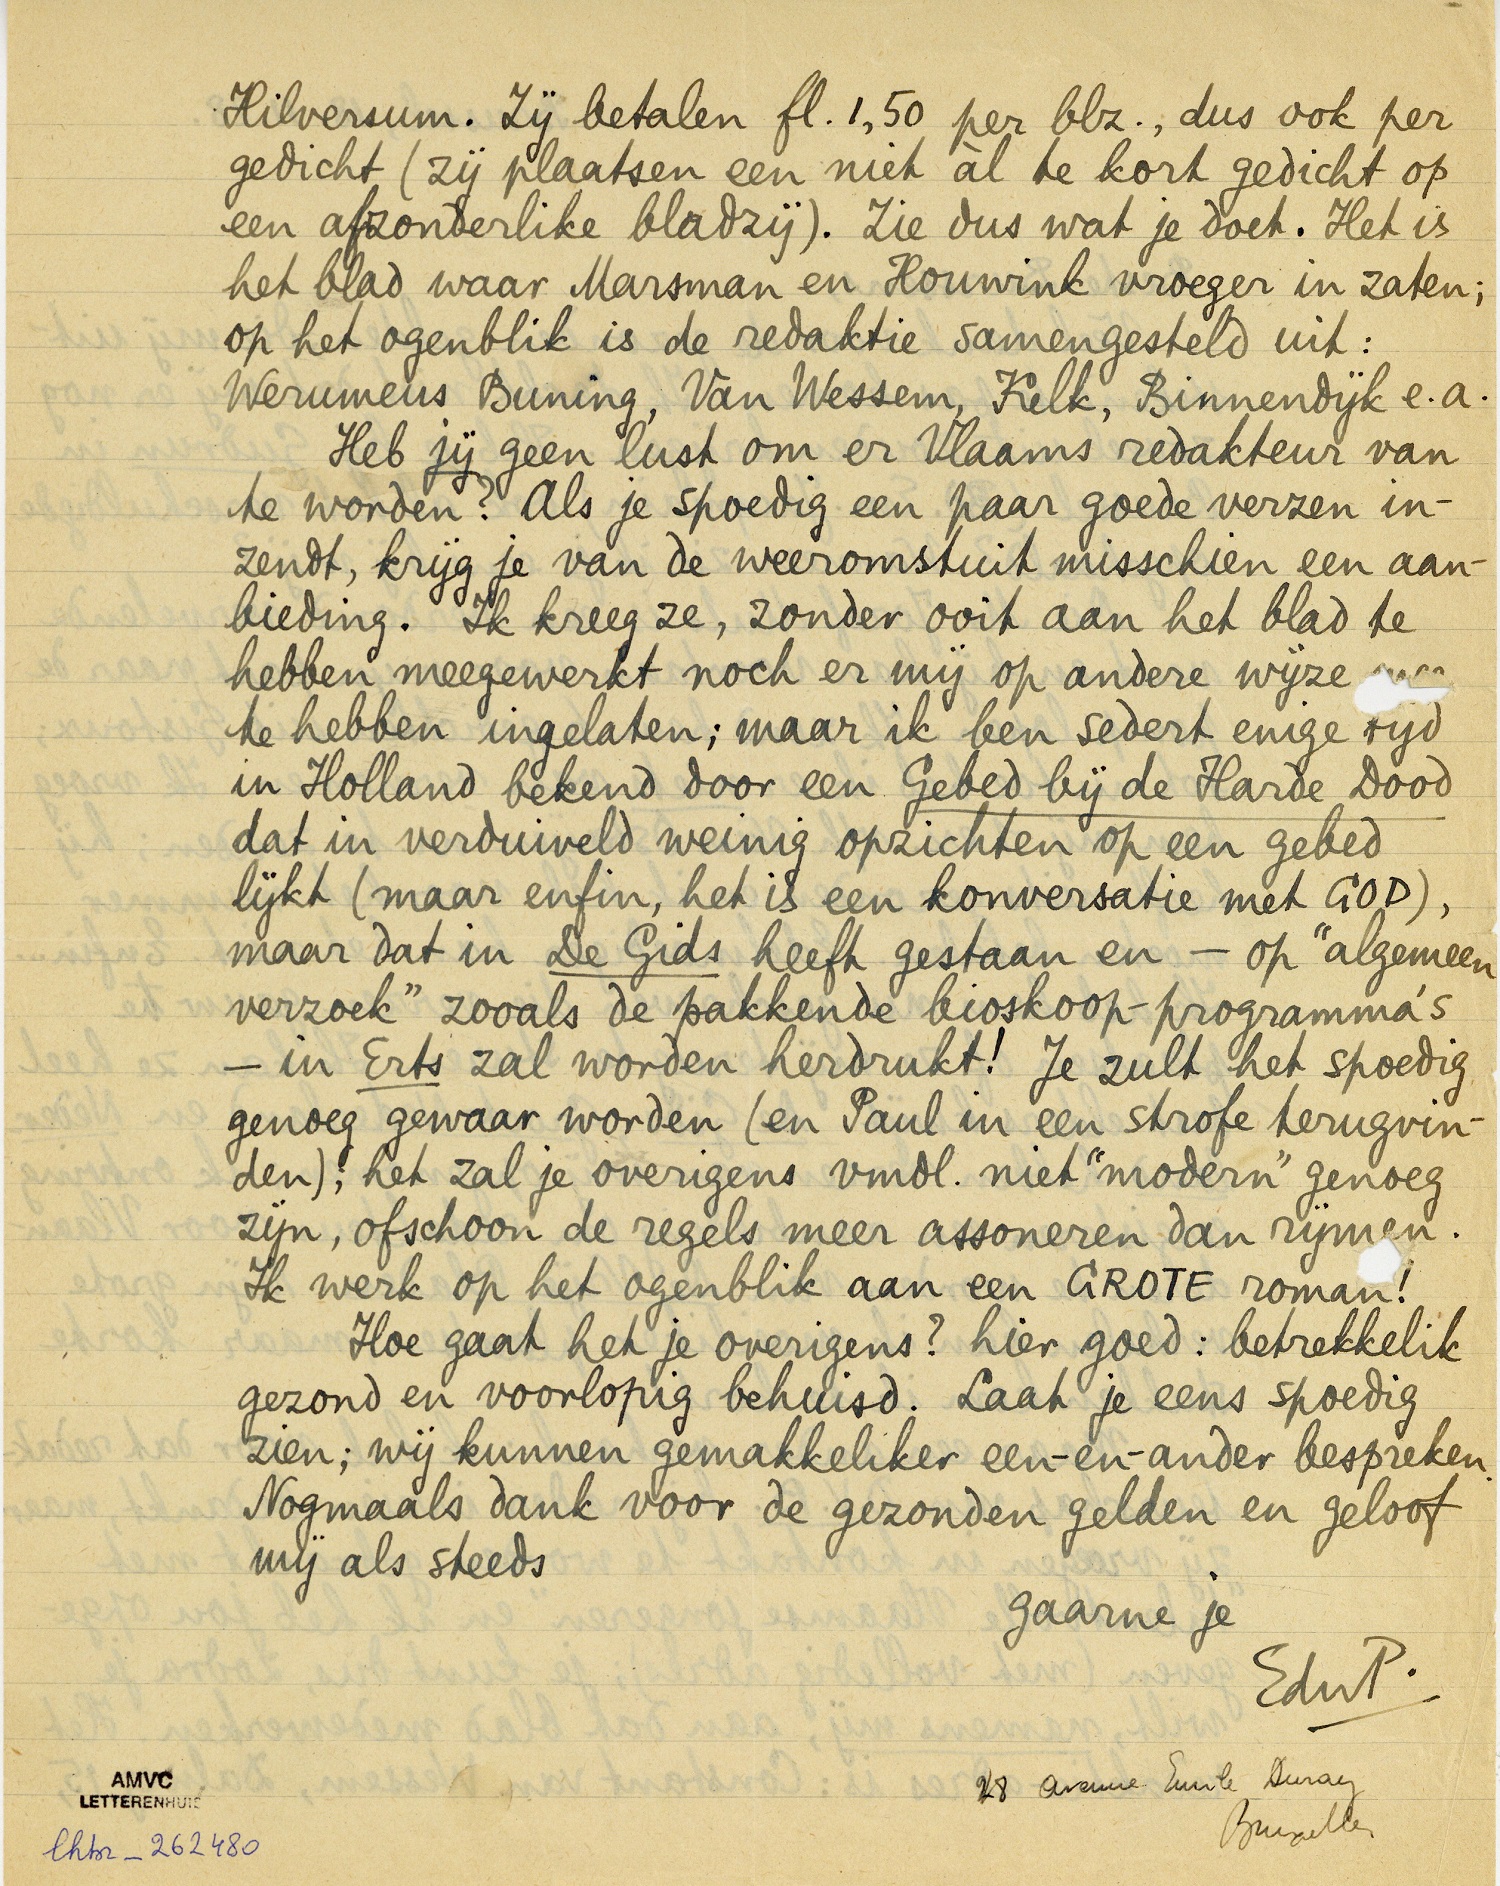 Hilversum. Zij betalen fl. 1,50 per blz., dus ook per
gedicht (zij plaatsen een niet àl te kort gedicht op
een afzonderlike bladzij). Zie dus wat je doet. Het is
het blad waar Marsman en Houwink vroeger in zaten;
op het ogenblik is de redaktie samengesteld uit:
Werumeus Buning, Van Wessem, Kelk, Binnendijk e.a.
Heb jij geen lust om er Vlaams redakteur van
te worden? Als je spoedig een paar goede verzen in-
zendt, krijg je van de weeromstuit misschien een aan-
bieding. Ik kreeg ze, zonder ooit aan het blad te
hebben meegewerkt noch er mij op andere wijze
te hebben ingelaten; maar ik ben sedert enige tijd
in Holland bekend door een Gebed bij de Harde Dood
dat in verduiveld weinig opzichten op een gebed
lijkt (maar enfin, het is een konversatie met GOD),
maar dat in De Gids heeft gestaan en — op "algemeen
verzoek" zooals de pakkende bioskoop-programma's
— in Erts zal worden herdrukt! Je zult het spoedig
genoeg gewaar worden (en Paul in een strofe terugvin-
den); het zal je overigens vmdl. niet "modern" genoeg
zijn, ofschoon de regels meer assoneren dan rijmen.
Ik werk op het ogenblik aan een GROTE roman!
Hoe gaat het je overigens? hier goed: betrekkelik
gezond en voorlopig behuisd. Laat je eens spoedig
zien; wij kunnen gemakkeliker een-en-ander bespreken.
Nogmaals dank voor de gezonden gelden en geloof
mij als steeds
gaarne je
EduP.
28 Avenue Emile Duray
Bruxelles
AMVC
LETTERENHUIS
lhbr_262480